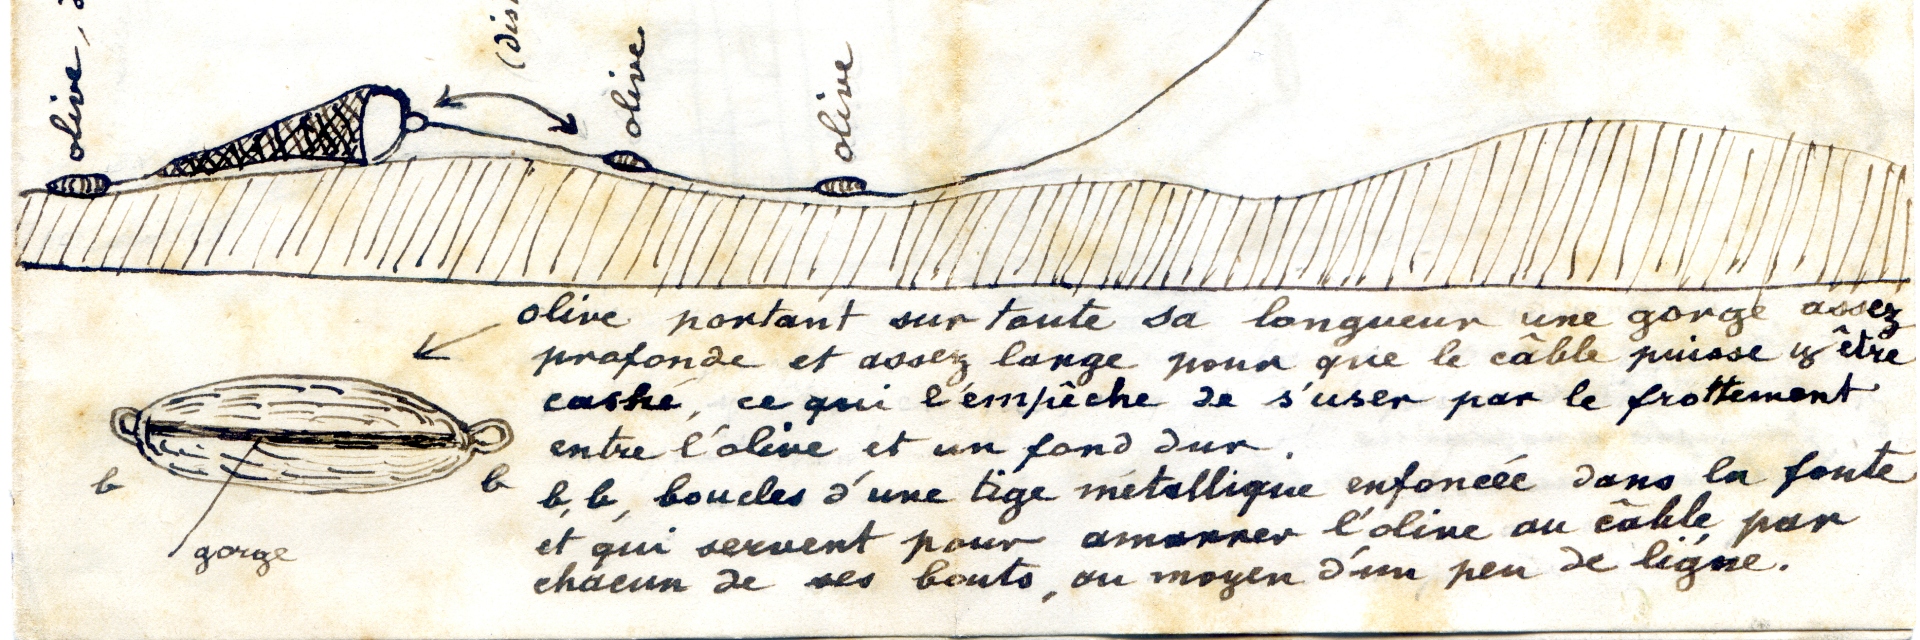 olive,
(dis
olive
olive
olive portant sur toute sa longueur une gorge assez
profonde et assez large pour que le câble puisse y être
caché, ce qui l'empêche de s'user par le frottement
entre l'olive et un fond dur.
b, b, boucles d'une tige métallique enfoncée dans la fonte
et qui servent pour amarrer l'olive au câble, par
chacun de ses bouts, au moyen d'un peu de ligne.
b
b
gorge